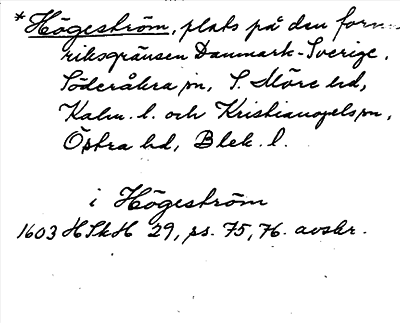 *Högeström, plats på den forn
riksgränsen Danmark-Sverige.
Söderåkra sn, S. Möre hd,
Kalm. l. och Kristianopels sn,
Östra hd, Blek. l.
i Högeström
1603 HSkH 29, ss. 75, 76. avskr.